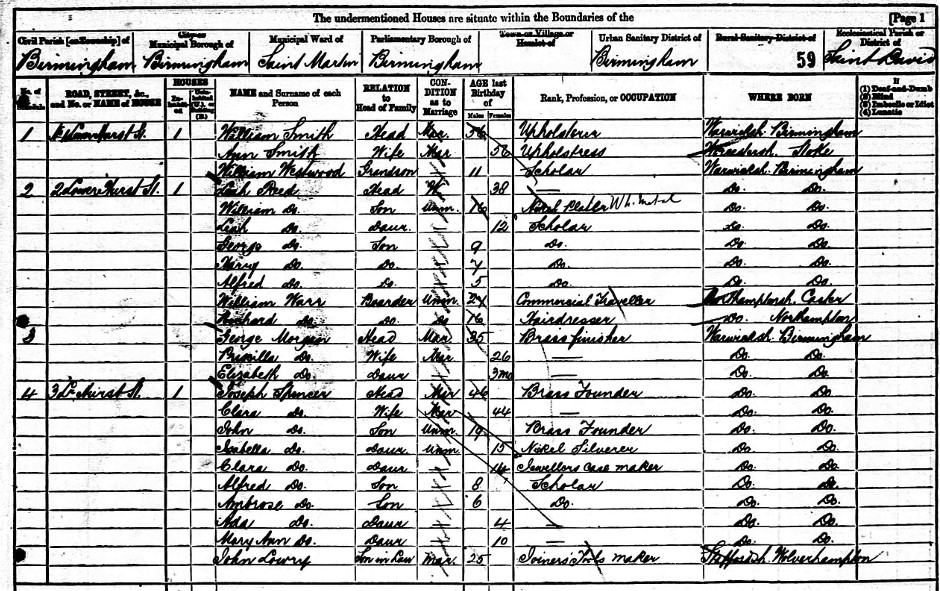 The undermentioned Houses are situate within the Boundaries of the [Page 1
Civil Parish [or Township] of City or Municipal Borough of Municipal Ward of Parliamentary Borough of Town or Village or Hamlet of Urban Sanitary District of Rural Sanitary District of Ecclesiastical Parish or District of
Birmingham Birmingham Saint Martin Birmingham Birmingham 59 Saint David
No. of Schedule ROAD, STREET, &c., and No. or NAME of HOUSE HOUSES Inhabited Uninhabited (U.), or Building (B.) NAME and Surname of each Person RELATION to Head of Family CONDITION as to Marriage AGE last Birthday of Males Females Rank, Profession, or OCCUPATION WHERE BORN If (1) Deaf-and-Dumb (2) Blind (3) Imbecile or Idiot (4) Lunatic
1 Lower Hurst St. 1 William Smith Head Mar. 56 Upholsterer Warwicksh. Birmingham
Ann Smith Wife Mar 56 Upholstress Stoke
William Westwood Grandson 11 Scholar Warwicksh. Birmingham
2 2 Lower Hurst St. 1 Leah Head W. 38 — Do. Do.
William Do. Son Unm. 16 Nickel Plater Wh. Metal Do. Do.
Leah Do. Daur. 12 Scholar Do. Do.
George Do. Son 9 Do. Do. Do.
Harry Do. Do. 7 Do. Do. Do.
Alfred Do. Do. 5 Do. Do. Do.
William Warr Boarder Unm. 24 Commercial Traveller Northamptonsh. Castor
Richard Do. Do. Do. 16 Hairdresser Do. Northampton
3 George Morgan Head Mar. 35 Brass finisher Warwicksh. Birmingham
Priscilla Do. Wife Mar 26 — Do. Do.
Elizabeth Do. Daur 3mo — Do. Do.
4 3 Lr. Hurst St. 1 Joseph Spencer Head Mar 46 Brass Founder Do. Do.
Clara Do. Wife Mar 44 — Do. Do.
John Do. Son Unm. 19 Brass Founder Do. Do.
Isabella Do. Daur. Unm. 15 Nickel Silverer Do. Do.
Clara Do. Daur 14 Jewellers Case maker Do. Do.
Alfred Do. Son 8 Scholar Do. Do.
Ambrose Do. Son 6 Do. Do. Do.
Ada Do. Daur 4 Do. Do.
Mary Ann Do. Daur 10 Do. Do.
John Lowry Son in Law Mar. 25 Joiners Tools maker Staffordsh. Wolverhampton